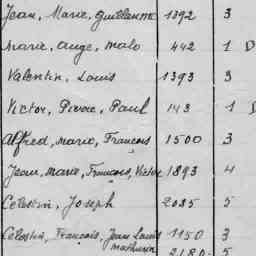 Jean, Marie, Guillaume 1392 3
Marie, Ange, Malo 442 1 D
Valentin, Louis 1393 3
Victor, Pierre, Paul 143 1
Alfred, Marie, François 1500 3
Jean, Marie, François, Victor 1893 4
Célestin, Joseph 2085 5
Célestin, François, Jean Louis 1150 3
Mathurin 2180 5